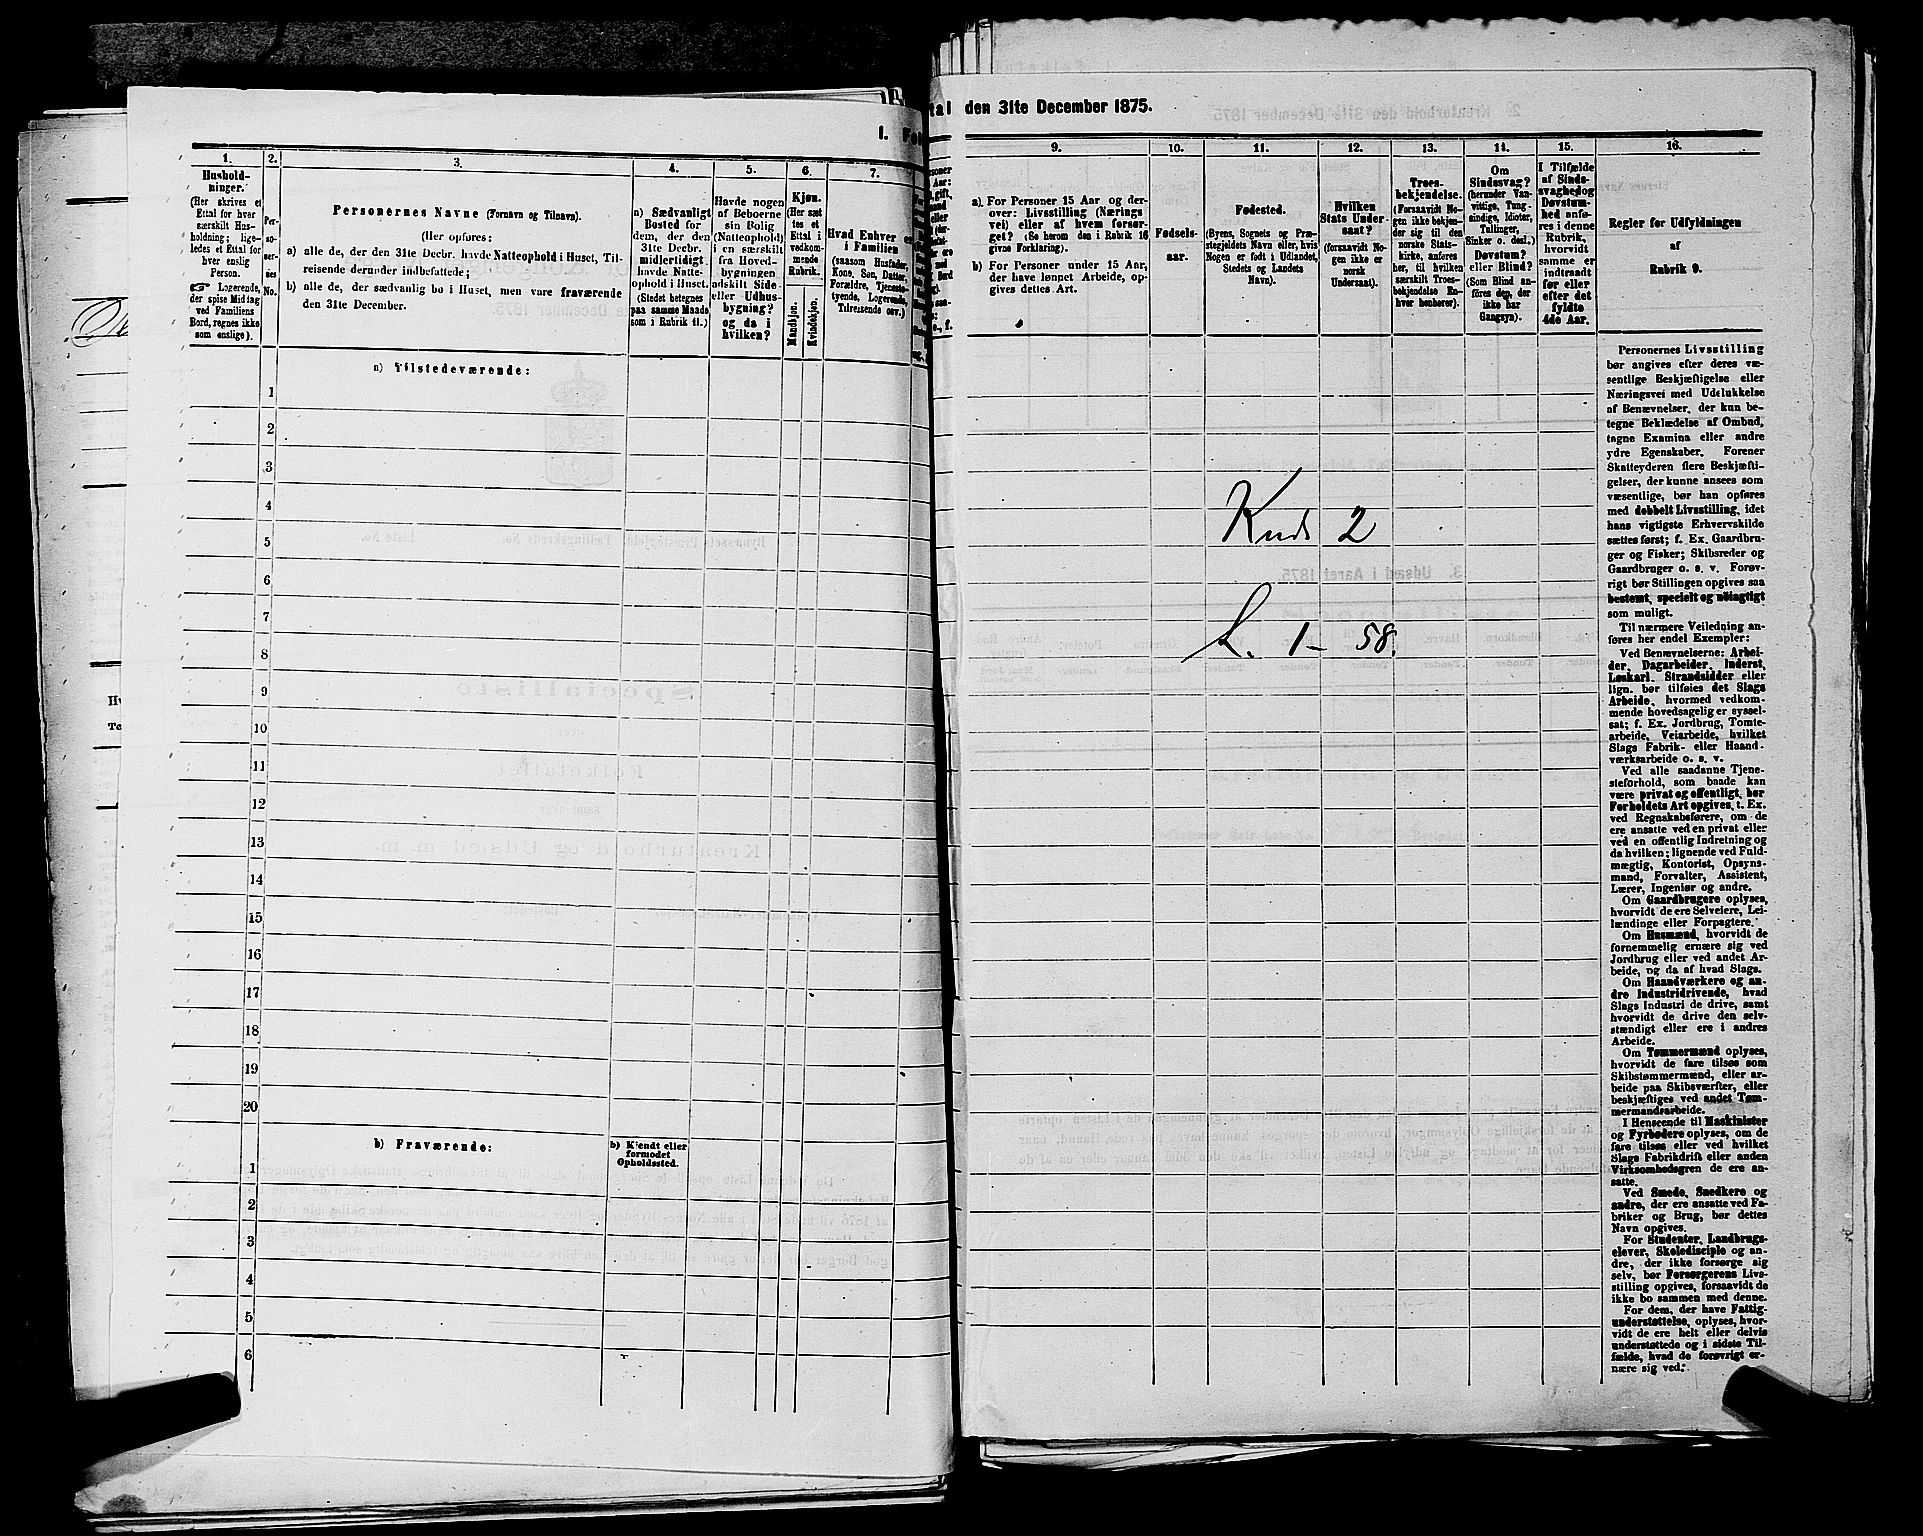 1. Fol
1.
Hushold-
ninger.
(Her skrives et
Ettal for hver
særskilt Hus-
holdning; lige-
ledes et Ettal for
hver enslig
Person.
☞ Logerende,
der spise Middag
ved Familiens
Bord, regnes ikke
som enslige).
2.
Per-
so-
ner-
nes
No.
3.
Personernes Navne (Fornavn og Tilnavn).
(Her opføres:
a) alle de, der den 31te Decbr. havde Natteophold i Huset, Til-
reisende derunder indbefattede;
b) alle de, der sædvanlig bo i Huset, men vare fraværende
den 31te December.
4.
a) Sædvanligt
Bosted for
dem, der den
31te Decbr.
midlertidigt
havde Natte-
ophold i Huset.
(Stedet betegnes
paa samme Maade
som i Rubrik 11.)
5.
Havde nogen
af Beboerne
sin Bolig
(Natteophold)
i en særskilt
fra Hoved-
bygningen
adskilt Side-
eller Udhus-
bygning?
og da i
hvilken?
6.
Kjøn.
(Her sæt
tes et
Ettal i
vedkom-
mende
Rubrik.
Mandkjøn.
Kvindekjøn.
7.
Hvad Enhver er
i Familien
(saasom Husfader,
Kone, Søn, Datter,
Forældre, Tjeneste-
tyende, Logerende,
Tilreisende osv.)
a) Tilstedeværende:
1
2
3
4
5
6
7
8
9
10
11
12
13
14
15
16
17
18
19
20
b) Fraværende:
b) Kjendt eller
formodet
Opholdssted.
1
2
3
4
5
6
tal den 31te December 1875.
9.
a). For Personer 15 Aar og der-
over: Livsstilling (Nærings
vei) eller af hvem forsør-
get? (Se herom den i Rubrik 16
givne Forklaring).
b) For Personer under 15 Aar,
der have lønnet Arbeide, op-
gives dettes Art.
10.
Fødsels-
aar.
11.
Fødested.
(Byens, Sognets og Præ-
stegjeldets Navn eller, hvis
Nogen er født i Udlandet,
Stedets og Landets
Navn).
12.
Hvilken
Stats Under-
saat?
(forsaavidt No-
gen ikke er
norsk
Undersaat).
13.
Troes-
bekjendelse.
(Forsaavidt No-
gen ikke bekjen-
der sig til den
norske Stats-
kirke, anføres
her, til hvilken
særskilt Troes-
bekjendelse En-
hver henhører).
14.
Om
Sindssvag?
(herunder Van-
vittige, Tung-
sindige, Idioter,
Tullinger,
Sinker o. desl.).
Døvstum?
eller Blind?
(Som Blind an-
føres den, der
ikke har
Gangsyn).
15.
I Tilfælde
af Sinds-
svaghed og
Døvstum-
hed anfø-
res i denne
Rubrik,
hvorvidt
samme er
indtraadt
før eller
efter det
fyldte
4de Aar.
16.
Regler for Udfyldningen
af
Rubrik 9.
Personernes Livsstilling
bør angives efter deres væ-
sentlige Beskjæftigelse eller
Næringsvei med Udelukkelse
af Benævnelser, der kun be-
tegne Beklædelse af Ombud,
tagne Examina eller andre
ydre Egenskaber. Forener
Skatteyderen flere Beskjæfti-
gelser, der kunne ansees som
væsentlige, bør han opføres
med dobbelt Livsstilling, idet
hans vigtigste Erhvervskilde
sættes først; f. Ex. Gaardbru-
ger og Fisker; Skibsreder og
Gaardbruger o. s. v. Forøv-
rigt bør Stillingen opgives saa
bestemt, specielt og nøiagtigt
som muligt.
Til nærmere Veiledning an-
føres her endel Exempler:
Ved Benævnelserne: Arbei-
der, Dagarbeider, Inderst,
Løskarl, Strandsidder eller
lign. bør tilføies det Slags
Arbeide, hvormed vedkom-
mende hovedsagelig er syssel-
sat; f. Ex. Jordbrug, Tomte-
arbeide, Veiarbeide, hvilket
Slags Fabrik- eller Haand-
værksarbeide o. s. v.
Ved alle saadanne Tjene-
steforhold, som baade kan
være privat og offentligt, bør
Forholdets Art opgives, t. Ex.
ved Regnskabsførere, om de
ere ansatte ved en privat eller
ved en offentlig Indretning og
da hvilken; lignende ved Fuld-
mægtig, Kontorist, Opsyns-
mand, Forvalter, Assistent,
Lærer, Ingeniør og andre.
Om Gaardbrugere oplyses,
hvorvidt de ere Selveiere, Lei-
lændinge eller Forpagtere.
Om Husmænd, hvorvidt de
fornemmelig ernære sig ved
Jordbrug eller ved andet Ar-
beide, og da af hvad Slags.
Om Haandværkere og an-
dre Industridrivende, hvad
Slags Industri de drive, samt
hvorvidt de drive den selv-
stændigt eller ere i andres
Arbeide.
Om Tømmermænd oplyses,
hvorvidt de fare tilsøs som
Skibstømmermænd, eller ar-
beide paa Skibsværfter, eller
beskjæftiges ved andet Tøm-
mermandsarbeide.
I Henseende til Maskinister
og Fyrbødere oplyses, om de
fare tilsøs eller ved hvilket
Slags Fabrikdrift eller anden
Virksomhedsgren de ere an-
satte.
Ved Smede, Snedkere og
andre, der ere ansatte ved Fa-
briker og Brug, bør dettes
Navn opgives.
For Studenter, Landbrugs-
elever, Skoledisciple og an-
dre, der ikke forsørge sig
selv, bør Forsørgerens Livs-
stilling opgives, forsaavidt de
ikke bo sammen med denne.
For dem, der have Fattig-
understøttelse, oplyses, hvor-
vidt de ere helt eller delvis
understøttede og i sidste Til-
fælde, hvad de forøvrigt er-
nære sig ved.
Kreds 2
L. 1 – 58.